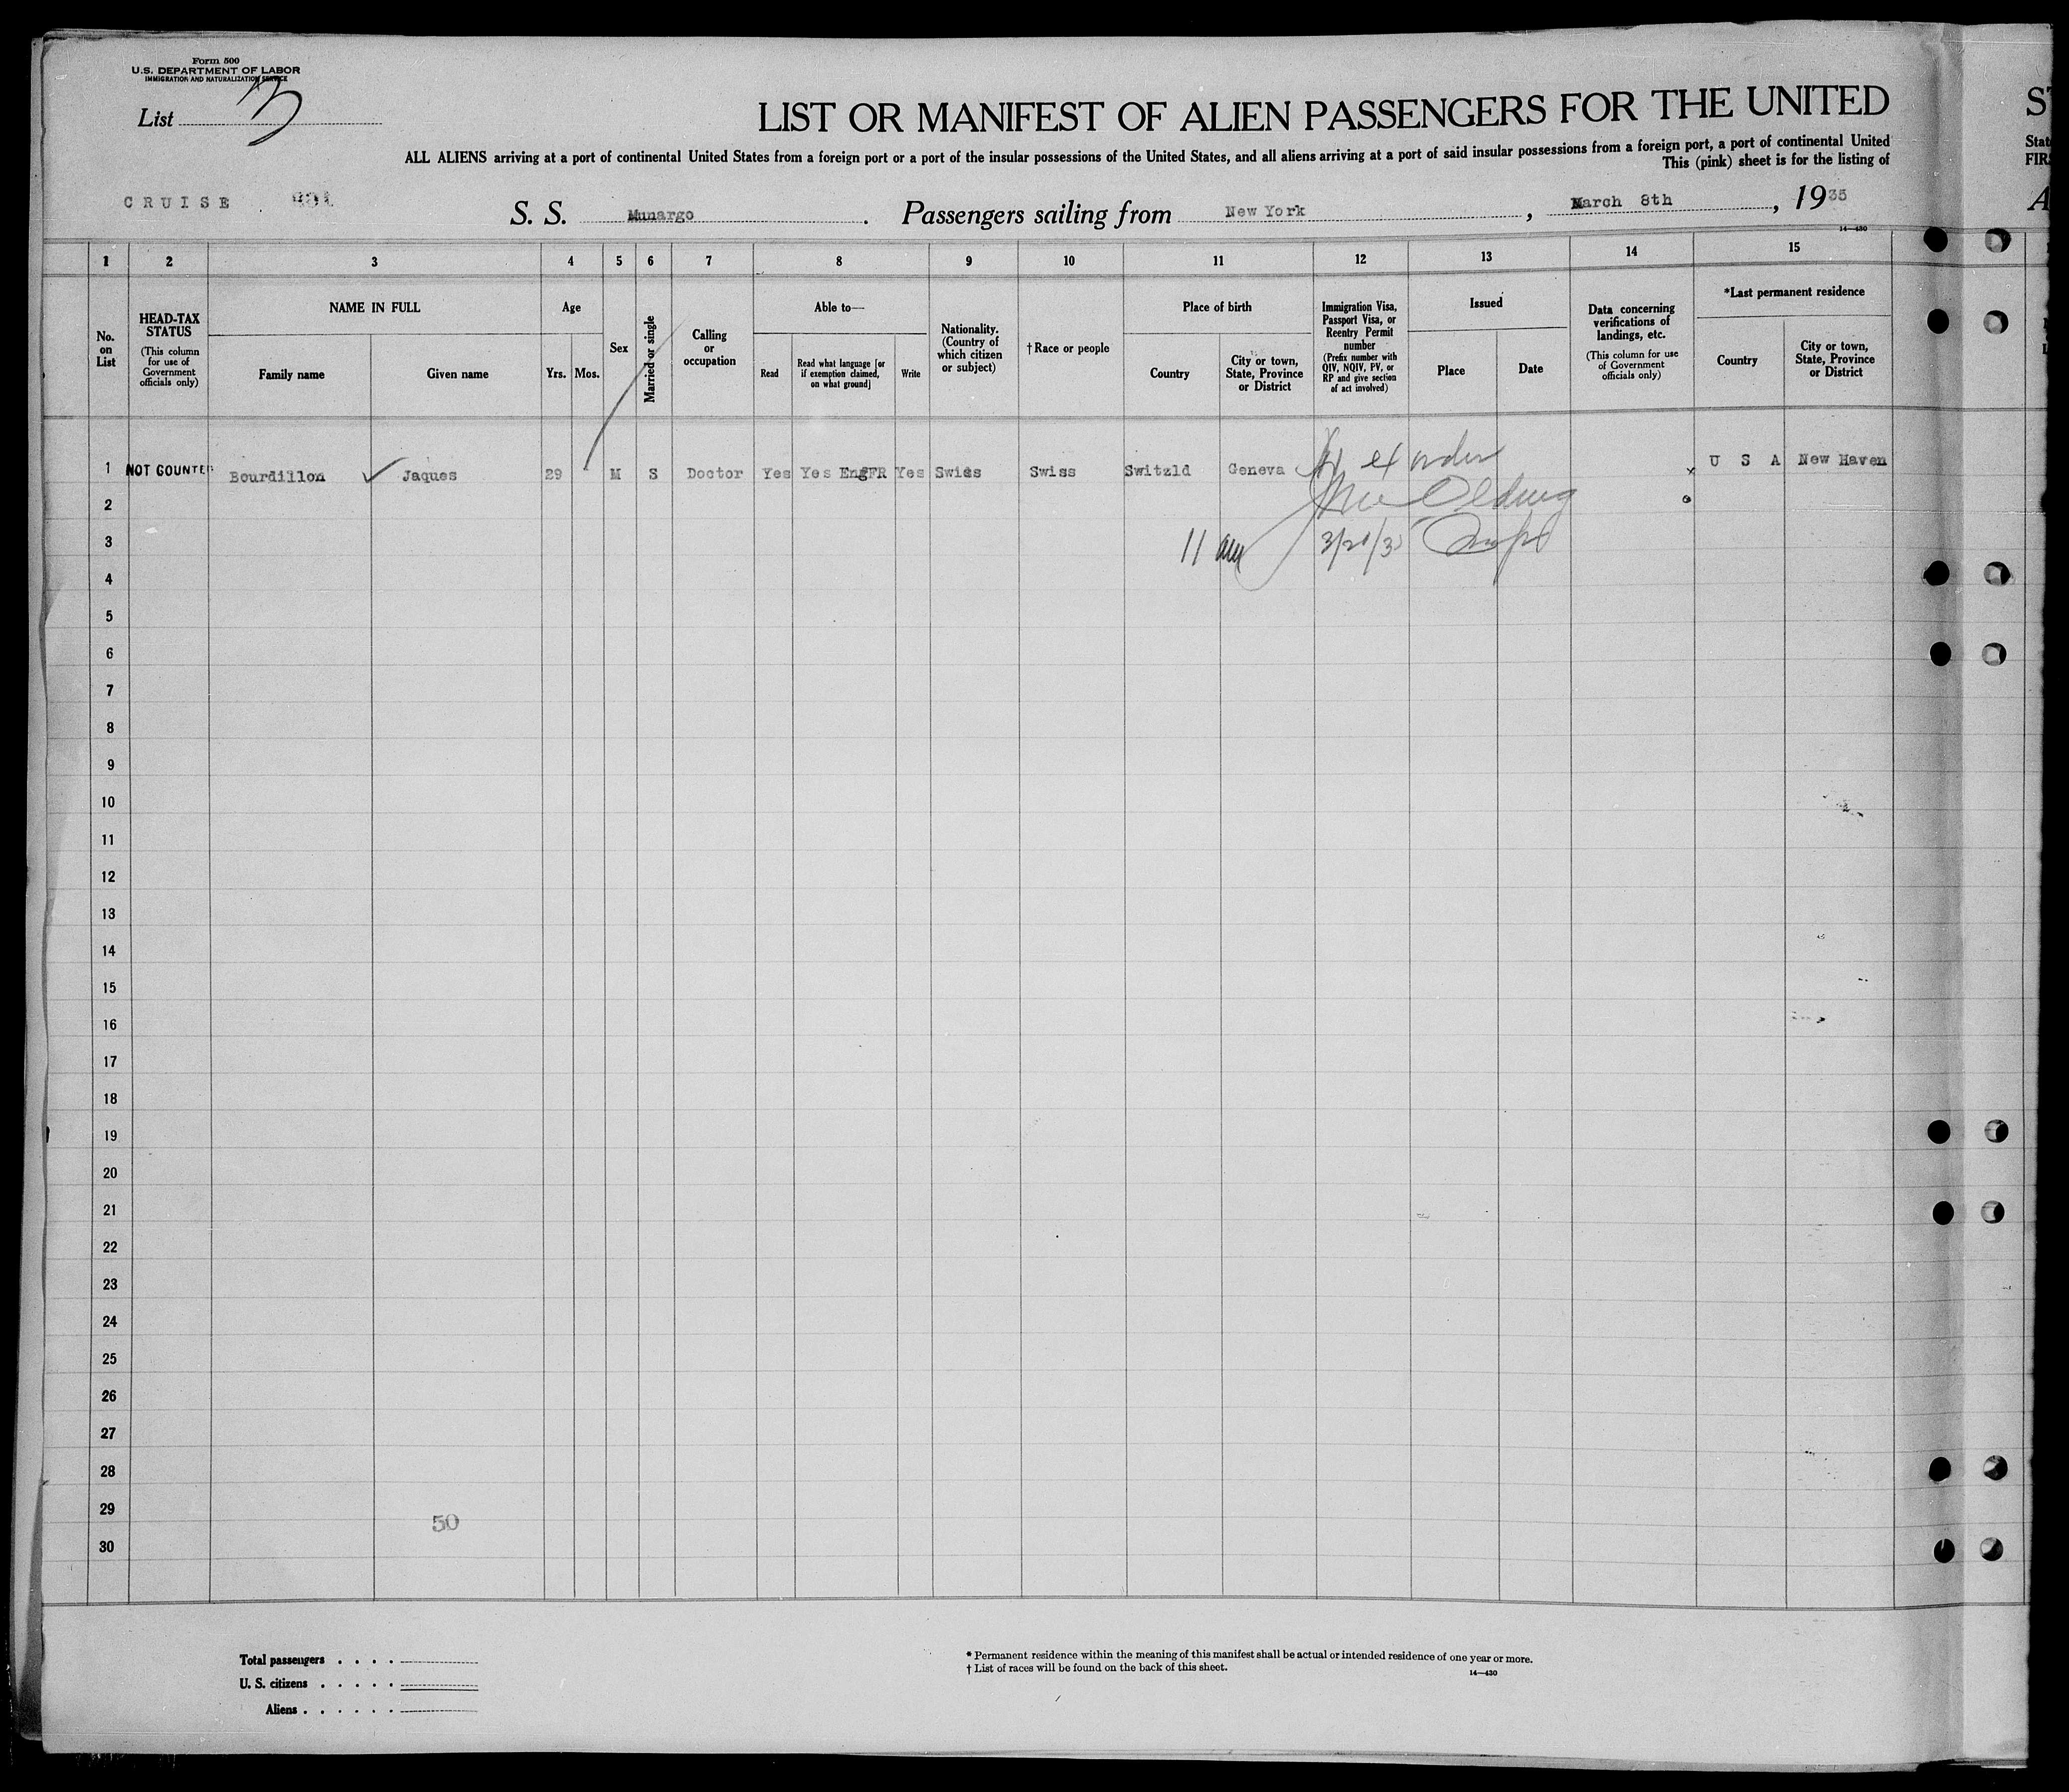 Form 500
U.S. DEPARTMENT OF LABOR
IMMIGRATION AND NATURALIZATION SERVICE
List 3
LIST OR MANIFEST OF ALIEN PASSENGERS FOR THE UNITED
ST
ALL ALIENS arriving at a port of continental United States from a foreign port or a port of the insular possessions of the United States, and all aliens arriving at a port of said insular possessions from a foreign port, a port of continental United
Stat
This (pink) sheet is for the listing of
FIR
CRUISE
S. S. Munargo. Passengers sailing from New York, March 8th, 1935
A
14—430
1 2 3 4 5 6 7 8 9 10 11 12 13 14 15
No. on List
HEAD-TAX STATUS
(This column for use of Government officials only)
NAME IN FULL
Family name
Given name
Age
Yrs.
Mos.
Sex
Married or single
Calling or occupation
Able to—
Read
Read what language [or if exemption claimed, on what ground]
Write
Nationality. (Country of which citizen or subject)
†Race or people
Place of birth
Country
City or town, State, Province or District
Immigration Visa, Passport Visa, or Reentry Permit number
(Prefix number with QIV, NQIV, PV, or RP and give section of act involved)
Issued
Place
Date
Data concerning verifications of landings, etc.
(This column for use of Government officials only)
*Last permanent residence
Country
City or town, State, Province or District
1 NOT COUNTED Bourdillon Jaques 29 M S Doctor Yes Yes EngFR Yes Swiss Swiss Switzld Geneva x U S A New Haven
2
3 11 am
4
5
6
7
8
9
10
11
12
13
14
15
16
17
18
19
20
21
22
23
24
25
26
27
28
29
50
30
Total passengers
U. S. citizens
Aliens
* Permanent residence within the meaning of this manifest shall be actual or intended residence of one year or more.
† List of races will be found on the back of this sheet.
14—430